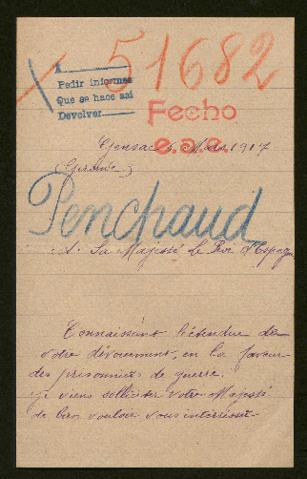 51682
1
Pedir informes
Que se hace así
Devolver
Fecho
e.a.e.
Gensac 6 1917
(Gironde)
Penchaud
A. Sa Majesté Le Roi d'Espagne
Connaissant l'étendue de
votre dévouement, en la faveur
des prisonniers de guerre.
je viens solliciter votre Majesté
de bien vouloir vous intéresser